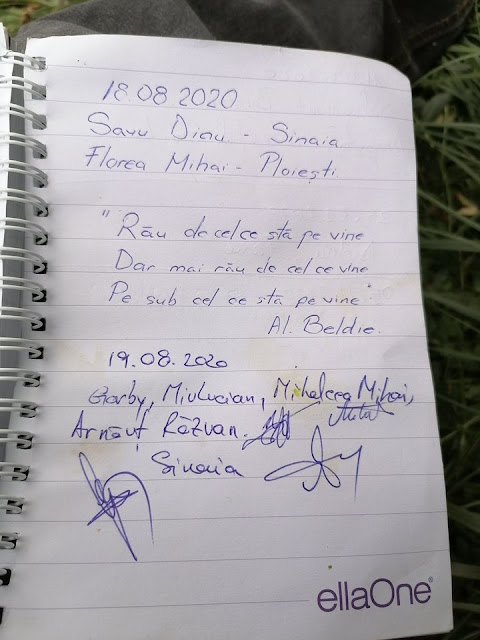 18.08.2020
Savu Dinu - Sinaia
Florea Mihai - Ploiești
"Rău de cel ce stă pe vine
Dar mai rău de cel ce vine
Pe sub cel ce stă pe vine"
Al. Beldie.
19.08.2020
Gorby, Miulucian, Mihalcea Mihai,
Arnăut Răzvan.
Sinaia
ellaOne®